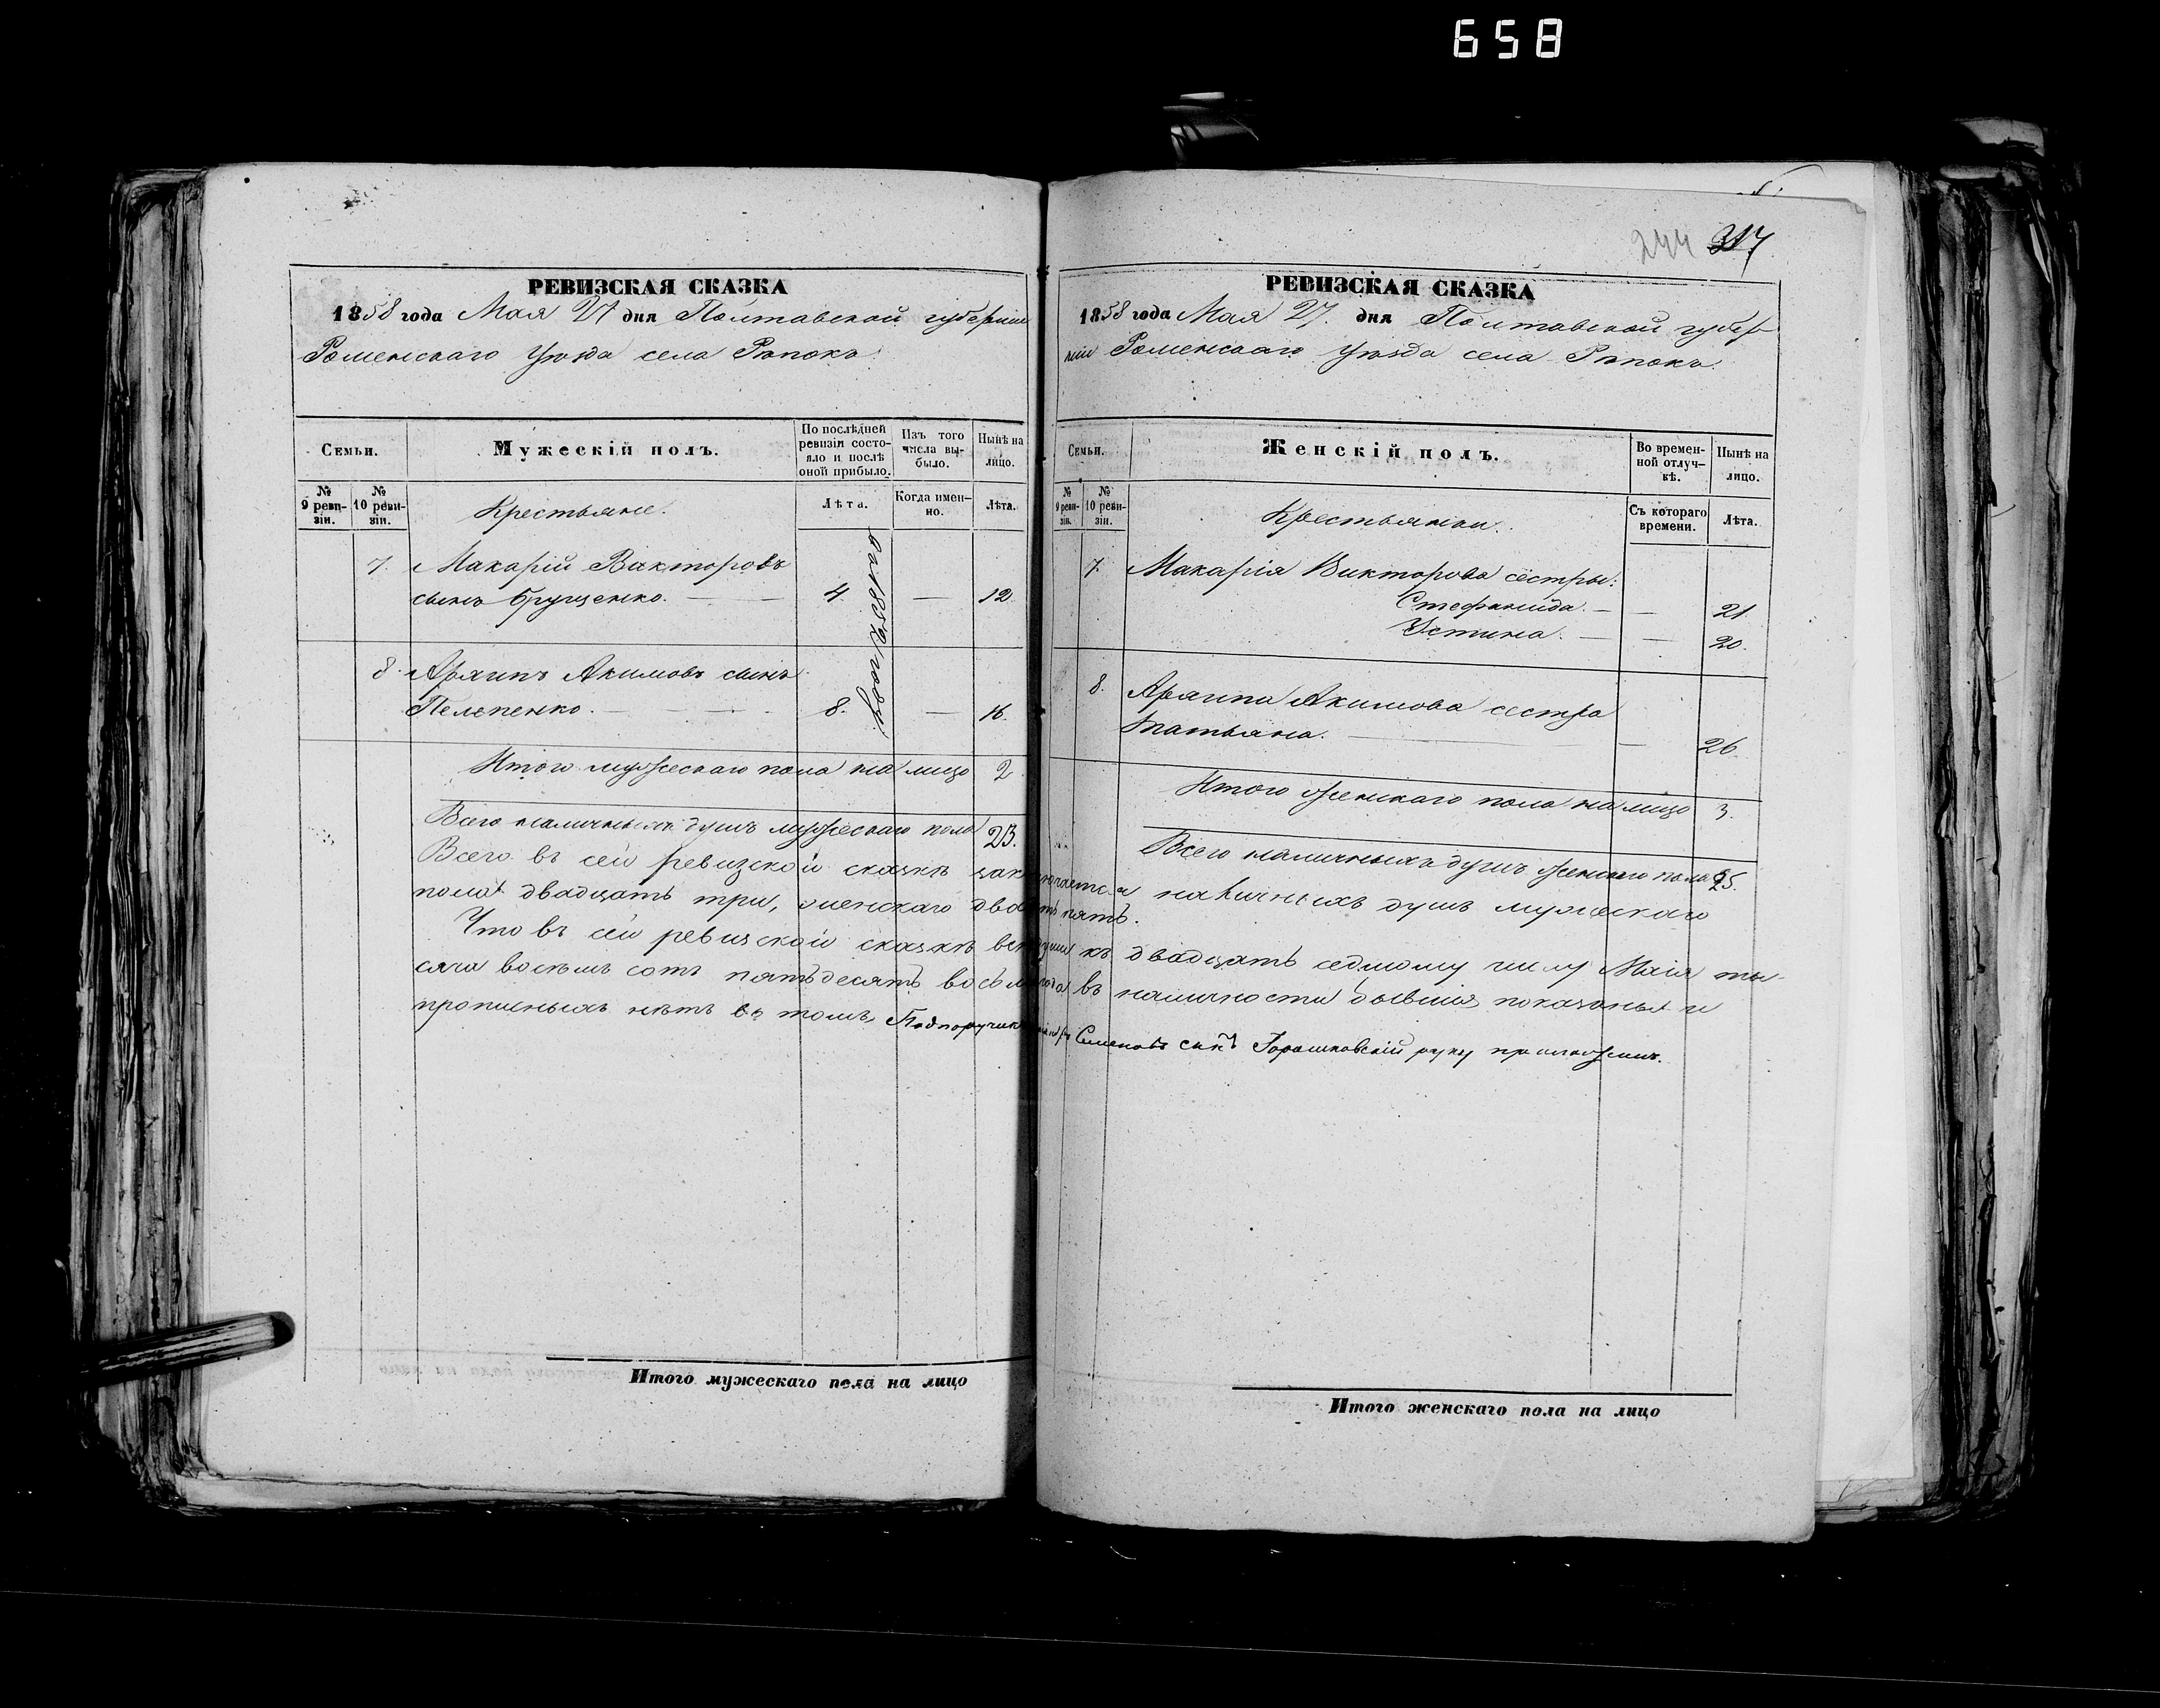 658
244 317
РЕВИЗСКАЯ СКАЗКА
1858 года Мая 27 дня Полтавской губерніи
Роменскаго уѣзда села Рѣпокъ.
Семьи.
Мужескій полъ.
По послѣдней ревизіи состояло и послѣ оной прибыло.
Изъ того числа выбыло.
Нынѣ на лицо.
№ 9 ревизіи.
№ 10 ревизіи.
Крестьяне.
Лѣта.
Когда именно.
Лѣта.
7. Макарій Викторовъ
сынъ Грищенко. — 4 — 12.
8. Агапъ Акимовъ сынъ
Пелепенко. — 8. — 16.
Итого мужескаго пола на лицо 2
Всего наличныхъ душъ мужескаго пола 23.
РЕВИЗСКАЯ СКАЗКА
1858 года Мая 27. дня Полтавской губер-
ніи Роменскаго уѣзда села Рѣпокъ.
Семьи.
Женскій полъ.
Во временной отлучкѣ.
Нынѣ на лицо.
№ 9 ревизіи.
№ 10 ревизіи.
Крестьянки.
Съ котораго времени.
Лѣта.
7. Макарія Викторова сестры:
Стефанида. — — 21.
Устина. — — 20.
8. Агапа Акимова сестра
Татьяна. — — 26.
Итого женскаго пола на лицо 3.
Всего наличныхъ душъ женскаго пола 25.
Всего въ сей ревизской сказкѣ заключается наличныхъ душъ мужескаго
пола двадцать три, женскаго двадцать пять.
Что въ сей ревизской сказкѣ всѣ души къ двадцать седмому числу Маія ты-
сяча восемь сотъ пятьдесятъ восьмаго года въ наличности бывшія показаны и
прописныхъ нѣтъ въ томъ, Подпоручикъ Семеновъ сынъ Горошковскій руку приложилъ.
Итого мужескаго пола на лицо
Итого женскаго пола на лицо